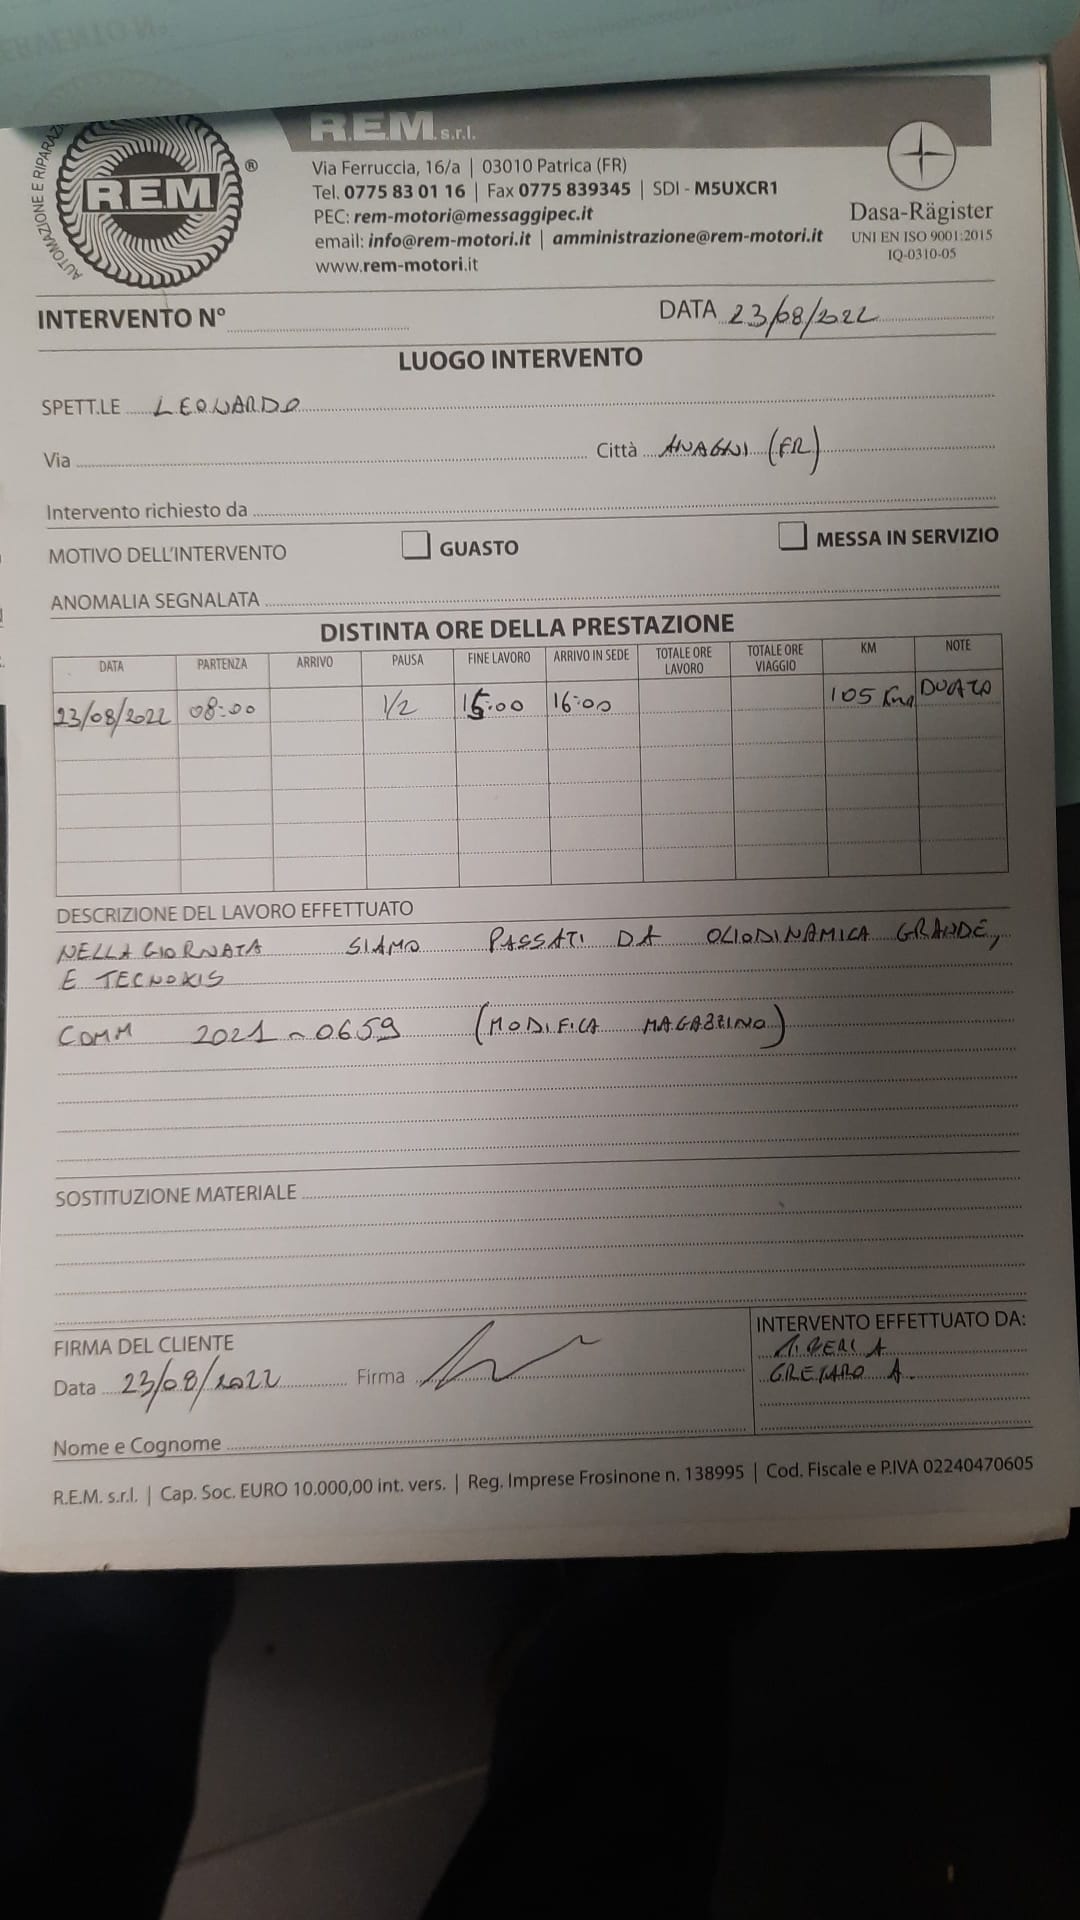 AUTOMAZIONE E RIPARAZ
REM
®
R.E.M. s.r.l.
Via Ferruccia, 16/a | 03010 Patrica (FR)
Tel. 0775 83 01 16 | Fax 0775 839345 | SDI - M5UXCR1
PEC: rem-motori@messaggipec.it
email: info@rem-motori.it | amministrazione@rem-motori.it
www.rem-motori.it
Dasa-Rägister
UNI EN ISO 9001:2015
IQ-0310-05
INTERVENTO N° DATA 23/08/2022
LUOGO INTERVENTO
SPETT.LE LEONARDO
Via Città ANAGNI (FR)
Intervento richiesto da
MOTIVO DELL'INTERVENTO GUASTO MESSA IN SERVIZIO
ANOMALIA SEGNALATA
DISTINTA ORE DELLA PRESTAZIONE
DATA PARTENZA ARRIVO PAUSA FINE LAVORO ARRIVO IN SEDE TOTALE ORE LAVORO TOTALE ORE VIAGGIO KM NOTE
23/08/2022 08:00 1/2 15:00 16:00 105 Km DUCATO
DESCRIZIONE DEL LAVORO EFFETTUATO
NELLA GIORNATA SIAMO PASSATI DA OLIODINAMICA GRANDE,
E TECNOKIS
COMM 2021-0659 (MODIFICA MAGAZZINO)
SOSTITUZIONE MATERIALE
FIRMA DEL CLIENTE
Data 23/08/2022 Firma
Nome e Cognome
INTERVENTO EFFETTUATO DA:
A
A.
R.E.M. s.r.l. | Cap. Soc. EURO 10.000,00 int. vers. | Reg. Imprese Frosinone n. 138995 | Cod. Fiscale e P.IVA 02240470605